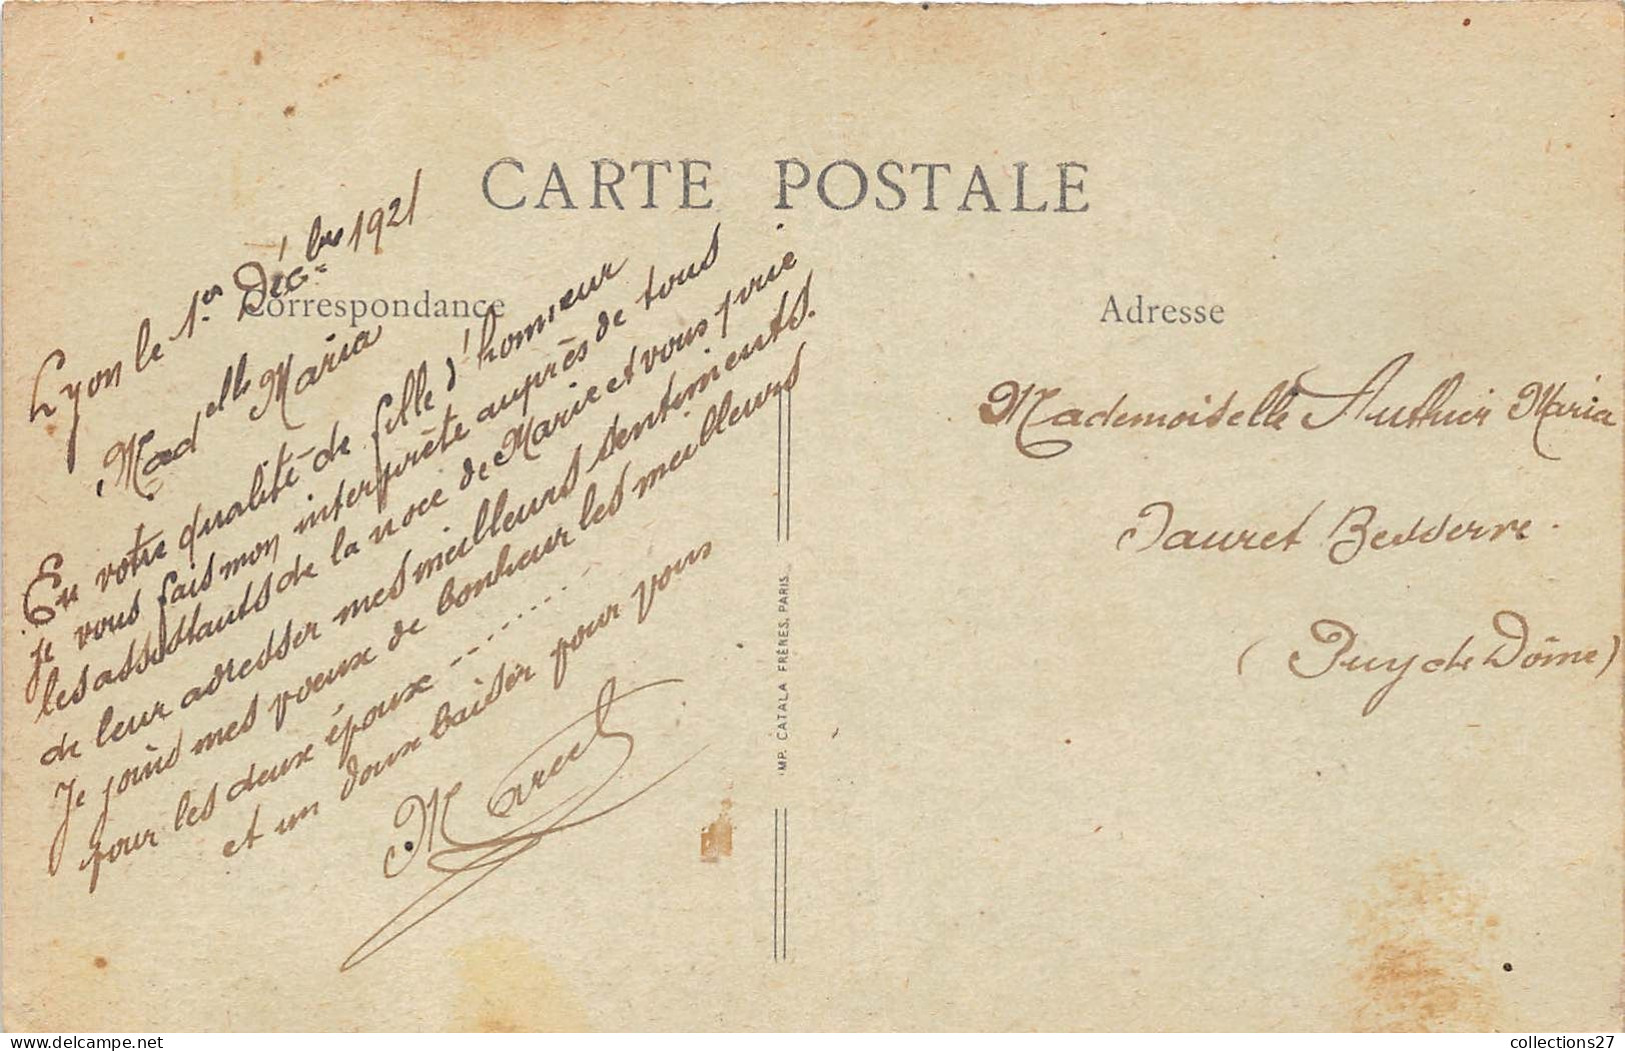 CARTE POSTALE
Correspondance
Lyon le 1er Décbre 1921
Madelle Maria
En votre qualité de fille d'honneur
je vous fais mon interprète auprès de tous
les assistants de la noce de Marie et vous prie
de leur adresser mes meilleurs sentiments.
Je joins mes voeux de bonheur les meilleurs
pour les deux époux ..........
et un doux baiser pour vous
Marcel
IMP. CATALA FRÈRES, PARIS
Adresse
Mademoiselle Authier Maria
Tauret Besserve.
(Puy de Dôme)
collections27